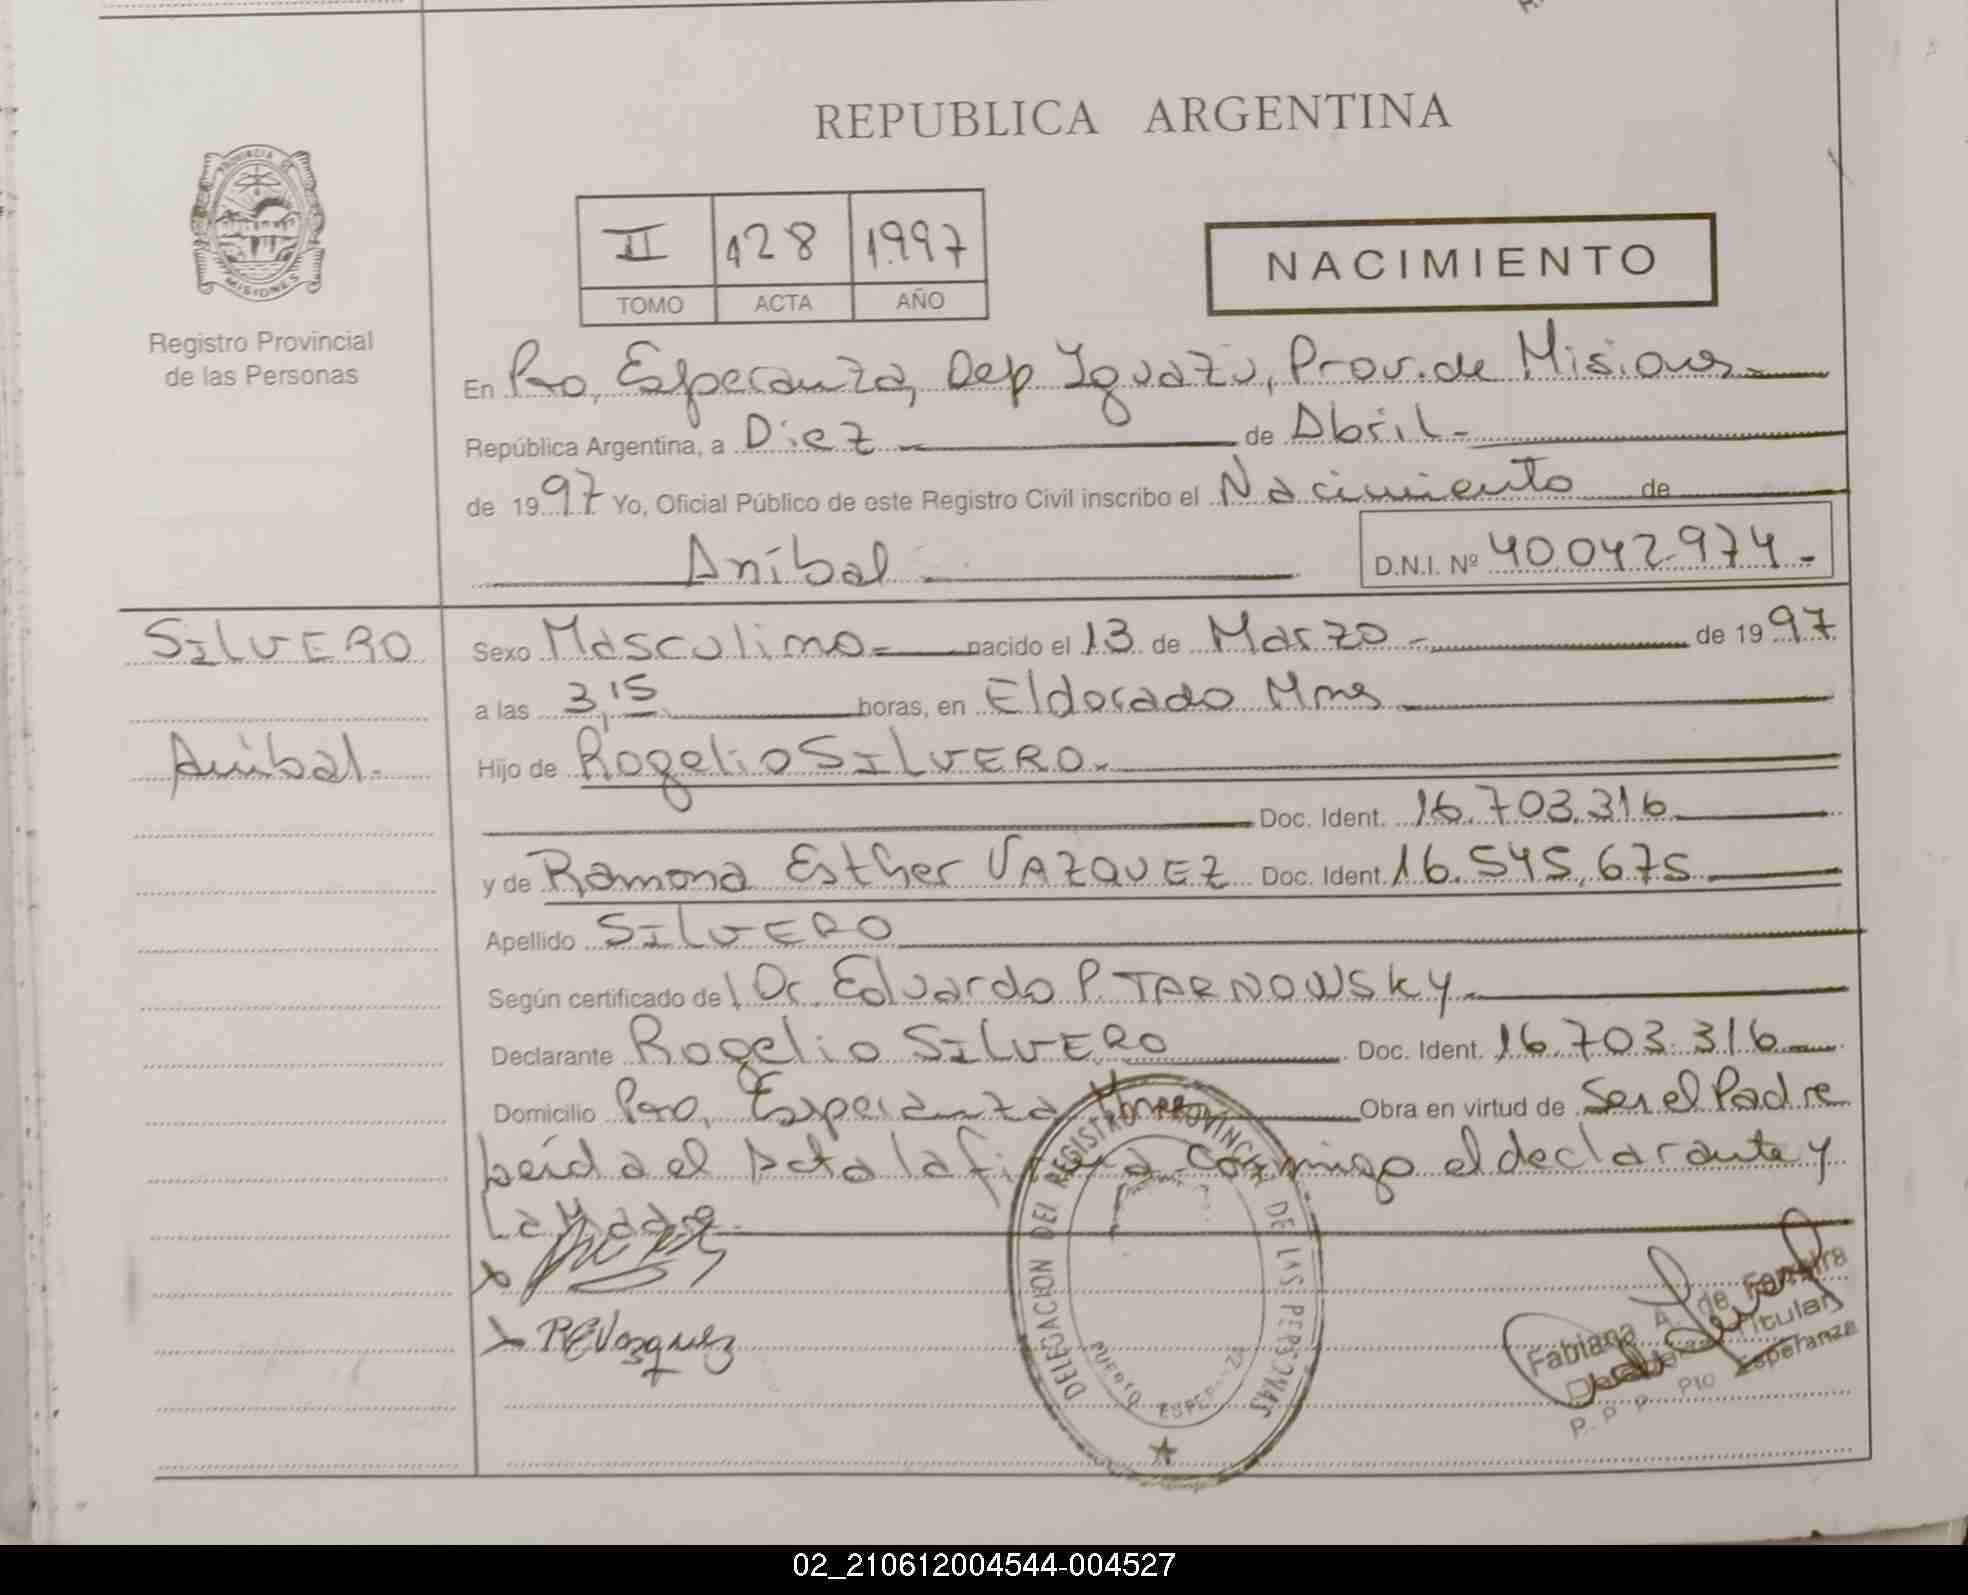 REPUBLICA ARGENTINA
PROVINCIA DE
MISIONES
Registro Provincial
de las Personas
II 128 1.997
TOMO ACTA AÑO
NACIMIENTO
En Pto, Esperanza, Dep Iguazú, Prov. de Misiones
República Argentina, a Diez de Abril.
de 1997 Yo, Oficial Público de este Registro Civil inscribo el Nacimiento de
Aníbal D.N.I. Nº 40.042.974.-
SILVERO
Aníbal.
Sexo Masculino nacido el 13 de Marzo de 1997
a las 3,15 horas, en Eldorado Mnes
Hijo de Rogelio SILVERO.
Doc. Ident. 16.703.316
y de Ramona Esther VAZQUEZ Doc. Ident. 16.545.675
Apellido SILVERO
Según certificado del Dr. Eduardo P. TARNOWSKY
Declarante Rogelio SILVERO Doc. Ident. 16.703.316
Domicilio Pto, Esperanza Mnes Obra en virtud de Ser el Padre
Leída el Acta la firma conmigo el declarante y
La Madre.
X
X REVazquez
DELEGACION DEL REGISTRO PROVINCIAL DE LAS PERSONAS
PUERTO ESPERANZA
Fabiana A. de Ferreira
Titular
R. P. P. Pto Esperanza
02_210612004544-004527